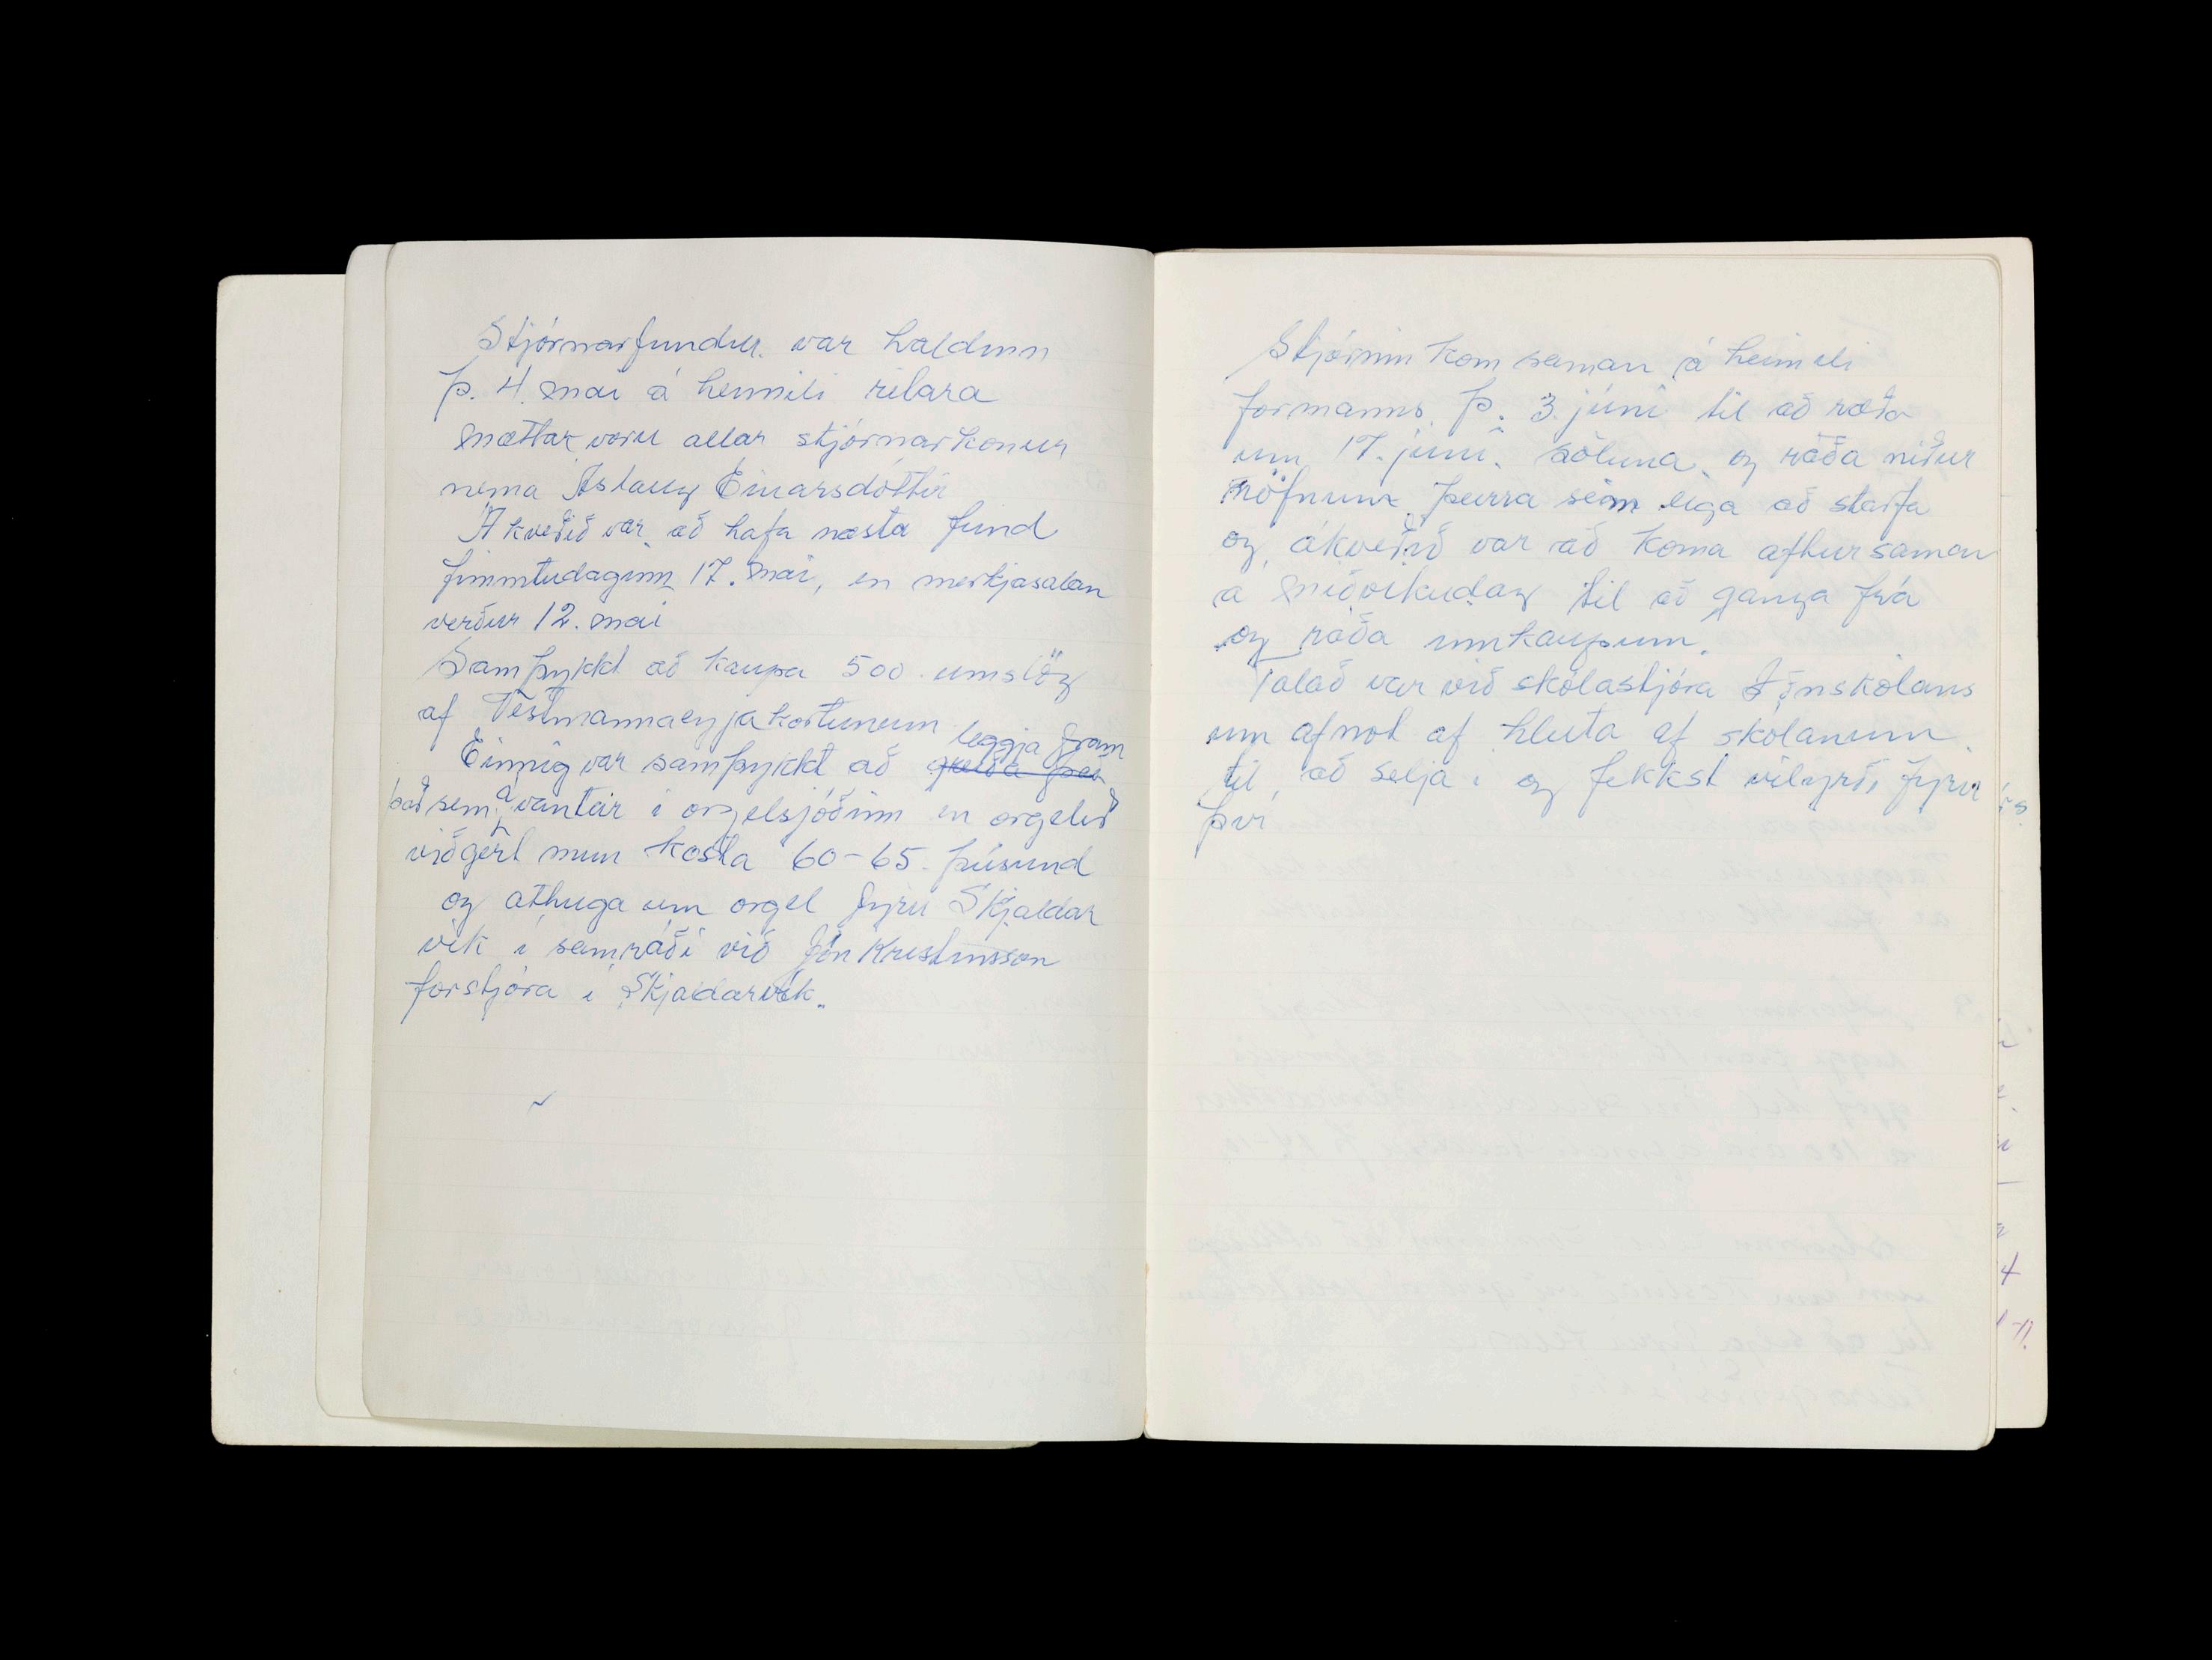 Stjórnarfundur var haldinn
þ. 4. maí á heimili ritara
mættar voru allar stjórnarkonur
nema Áslaug Einarsdóttir
Ákveðið var að hafa næsta fund
fimmtudaginn 17. maí, en merkjasalan
verður 12. maí
Samþykkt að kaupa 500 umslög
af Vestmannaeyjakortunum
leggja fram
Einnig var samþykkt að greiða það
það sem á vantar í orgelsjóðinn en orgelið
viðgert mun kosta 60-65 þúsund
og athuga um orgel fyrir Skjaldar
vík í samráði við Jón Kristinsson
forstjóra í Skjaldarvík.
Stjórnin kom saman á heimili
formanns þ. 3. júní til að ræða
um 17. júní söluna og raða niður
nöfnum þeirra sem eiga að starfa
og ákveðið var að koma aftur saman
á miðvikudag til að ganga frá
og ráða innkaupum.
Talað var við skólastjóra Iðnskólans
um afnot af hluta af skólanum
til að selja í og fekkst vilyrði fyrir
því